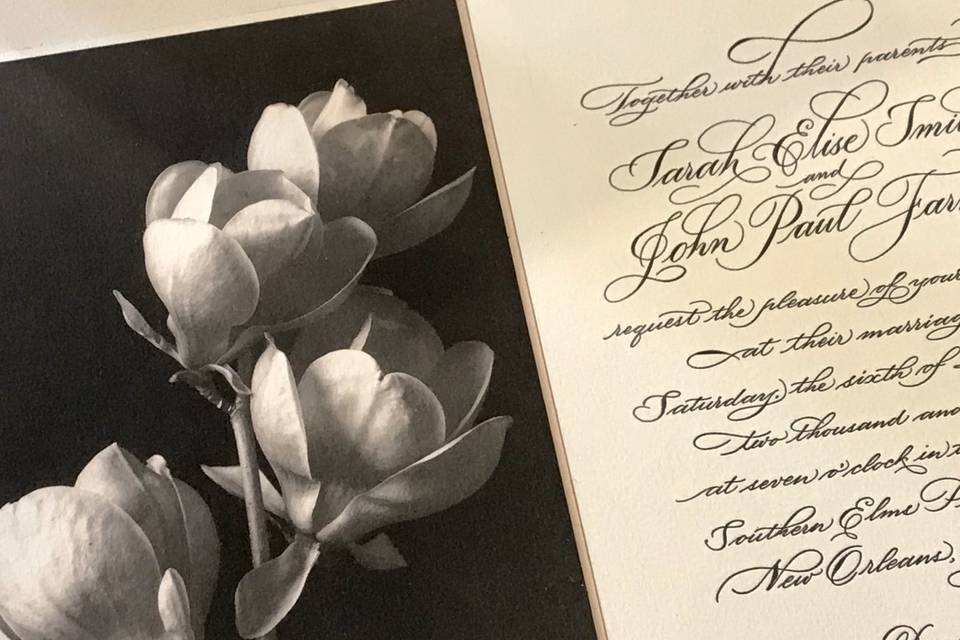 Together with their parents
Sarah Elise
and
John Paul
request the pleasure of your
at their
Saturday, the sixth of
two thousand and
at seven o'clock in
Southern Elms
New Orleans,